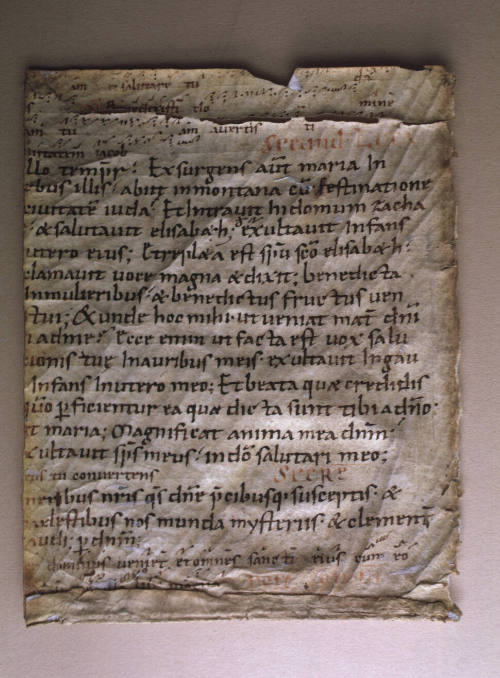 am et salutare tu
am tu am avertis ti
iacob
llo tempr̄. Exsurgens aut̄ maria In
ebus illis. abiit inmontana cū festinatione
ciuitatē iuda. Et Intrauit In domum zacha
& salutauit elisab&h; exultauit Infans
utero eius; & repl&a est sp̄u sc̄o elisab&h.
clamauit uoce magna & dix̄it; benedicta
Inmulieribus. & benedictus fructus uen
tui; & unde hoc mihi. ut ueniat mat̄ dn̄i
i adme? Ecce enim ut facta est uox salu
tionis tuę Inauribus meis. exultauit Ingau
Infans Inutero meo; Et beata quae credidis
quō perficientur ea quae dicta sunt tibi adn̄o;
t maria; Magnificat anima mea dn̄m;
xultauit sps̄ meus. in dō salutari meo;
us tu convertens Secre
neribus nr̄is qs̄ dn̄e p̄cibusq; susceptis. &
aelestibus nos munda mysteriis. & clement̄
audi; p̄ dn̄m;
dominus ueniet. et omnes sancti eius cum eo